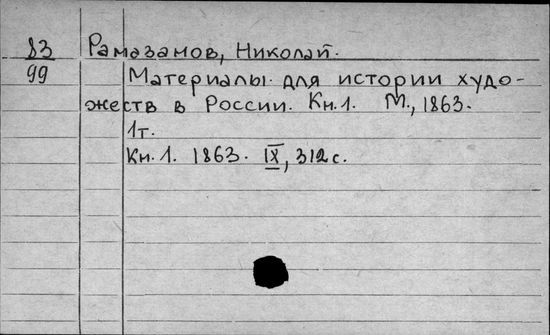 83 Рамазанов, Николай.
99 Материалы для истории худо-
жеств в России. Кн.1. М., 1863.
1т.
Кн.1. 1863. IX, 312 с.